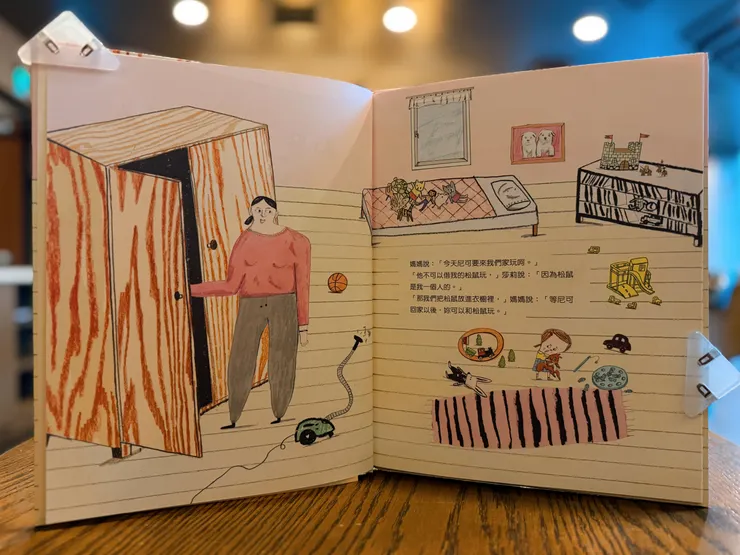 媽媽說：「今天尼可要來我們家玩呵。」
「他不可以借我的松鼠玩，」莎莉說：「因為松鼠
是我一個人的。」
「那我們把松鼠放進衣櫥裡，」媽媽說：「等尼可
回家以後，妳可以和松鼠玩。」